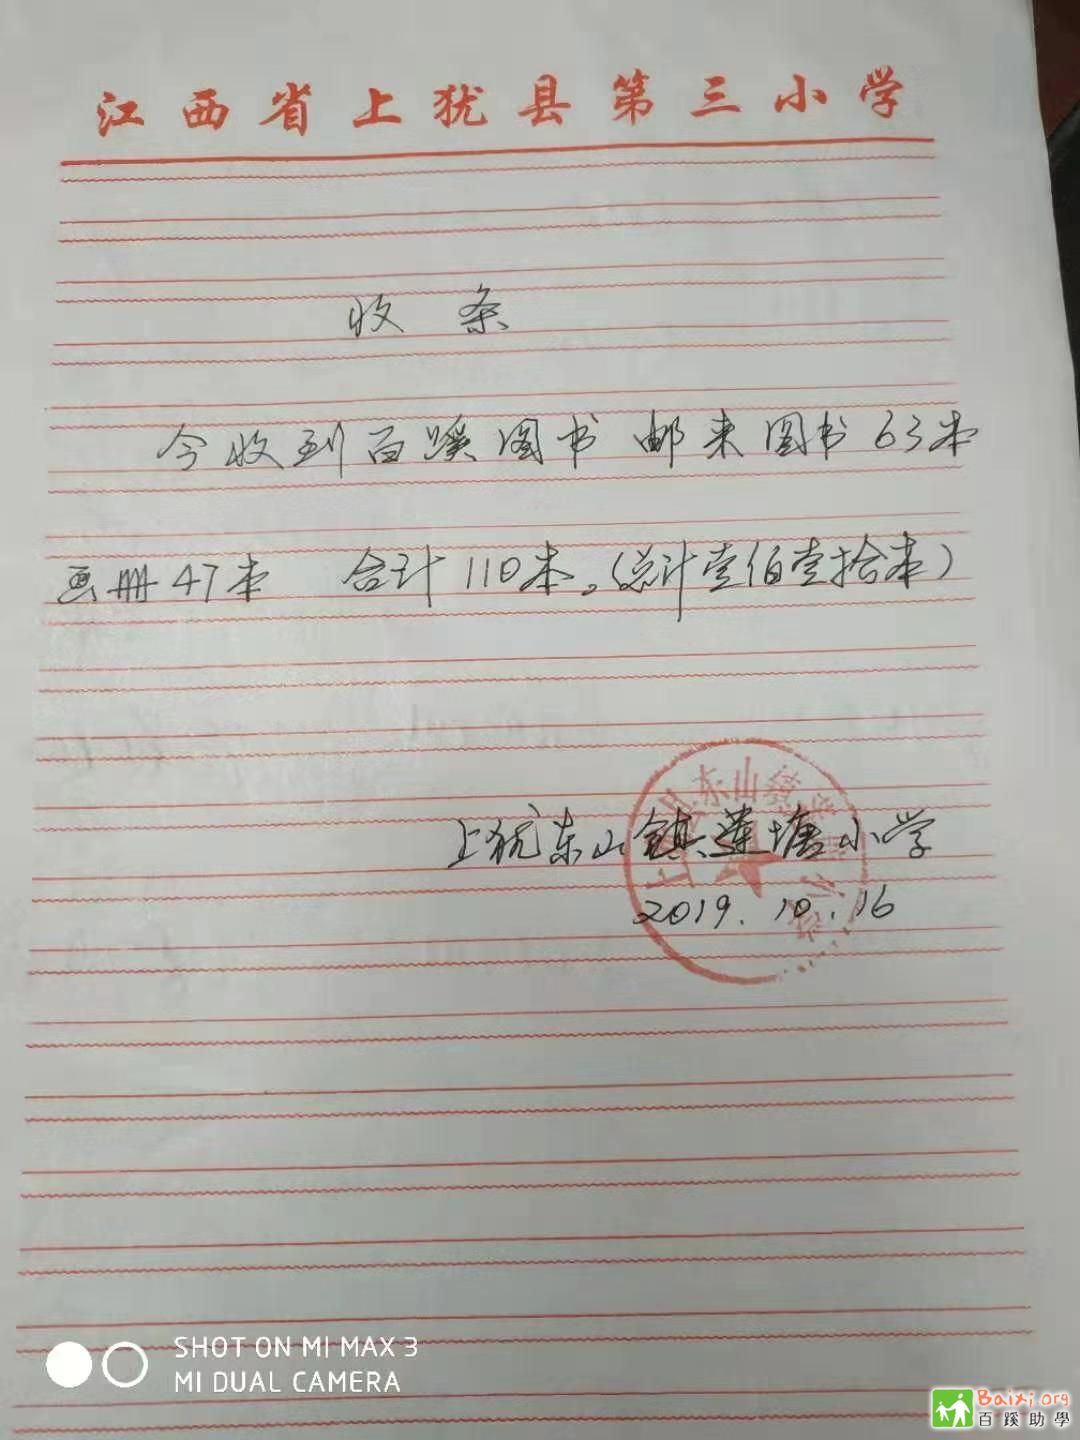 江西省上犹县第三小学
收条
今收到百蹊图书 邮来图书63本
画册47本 合计110本。(总计壹佰壹拾本)
东山镇
上犹东山镇莲塘小学
2019.10.16
SHOT ON MI MAX 3
MI DUAL CAMERA
Baixi.org
百蹊助學